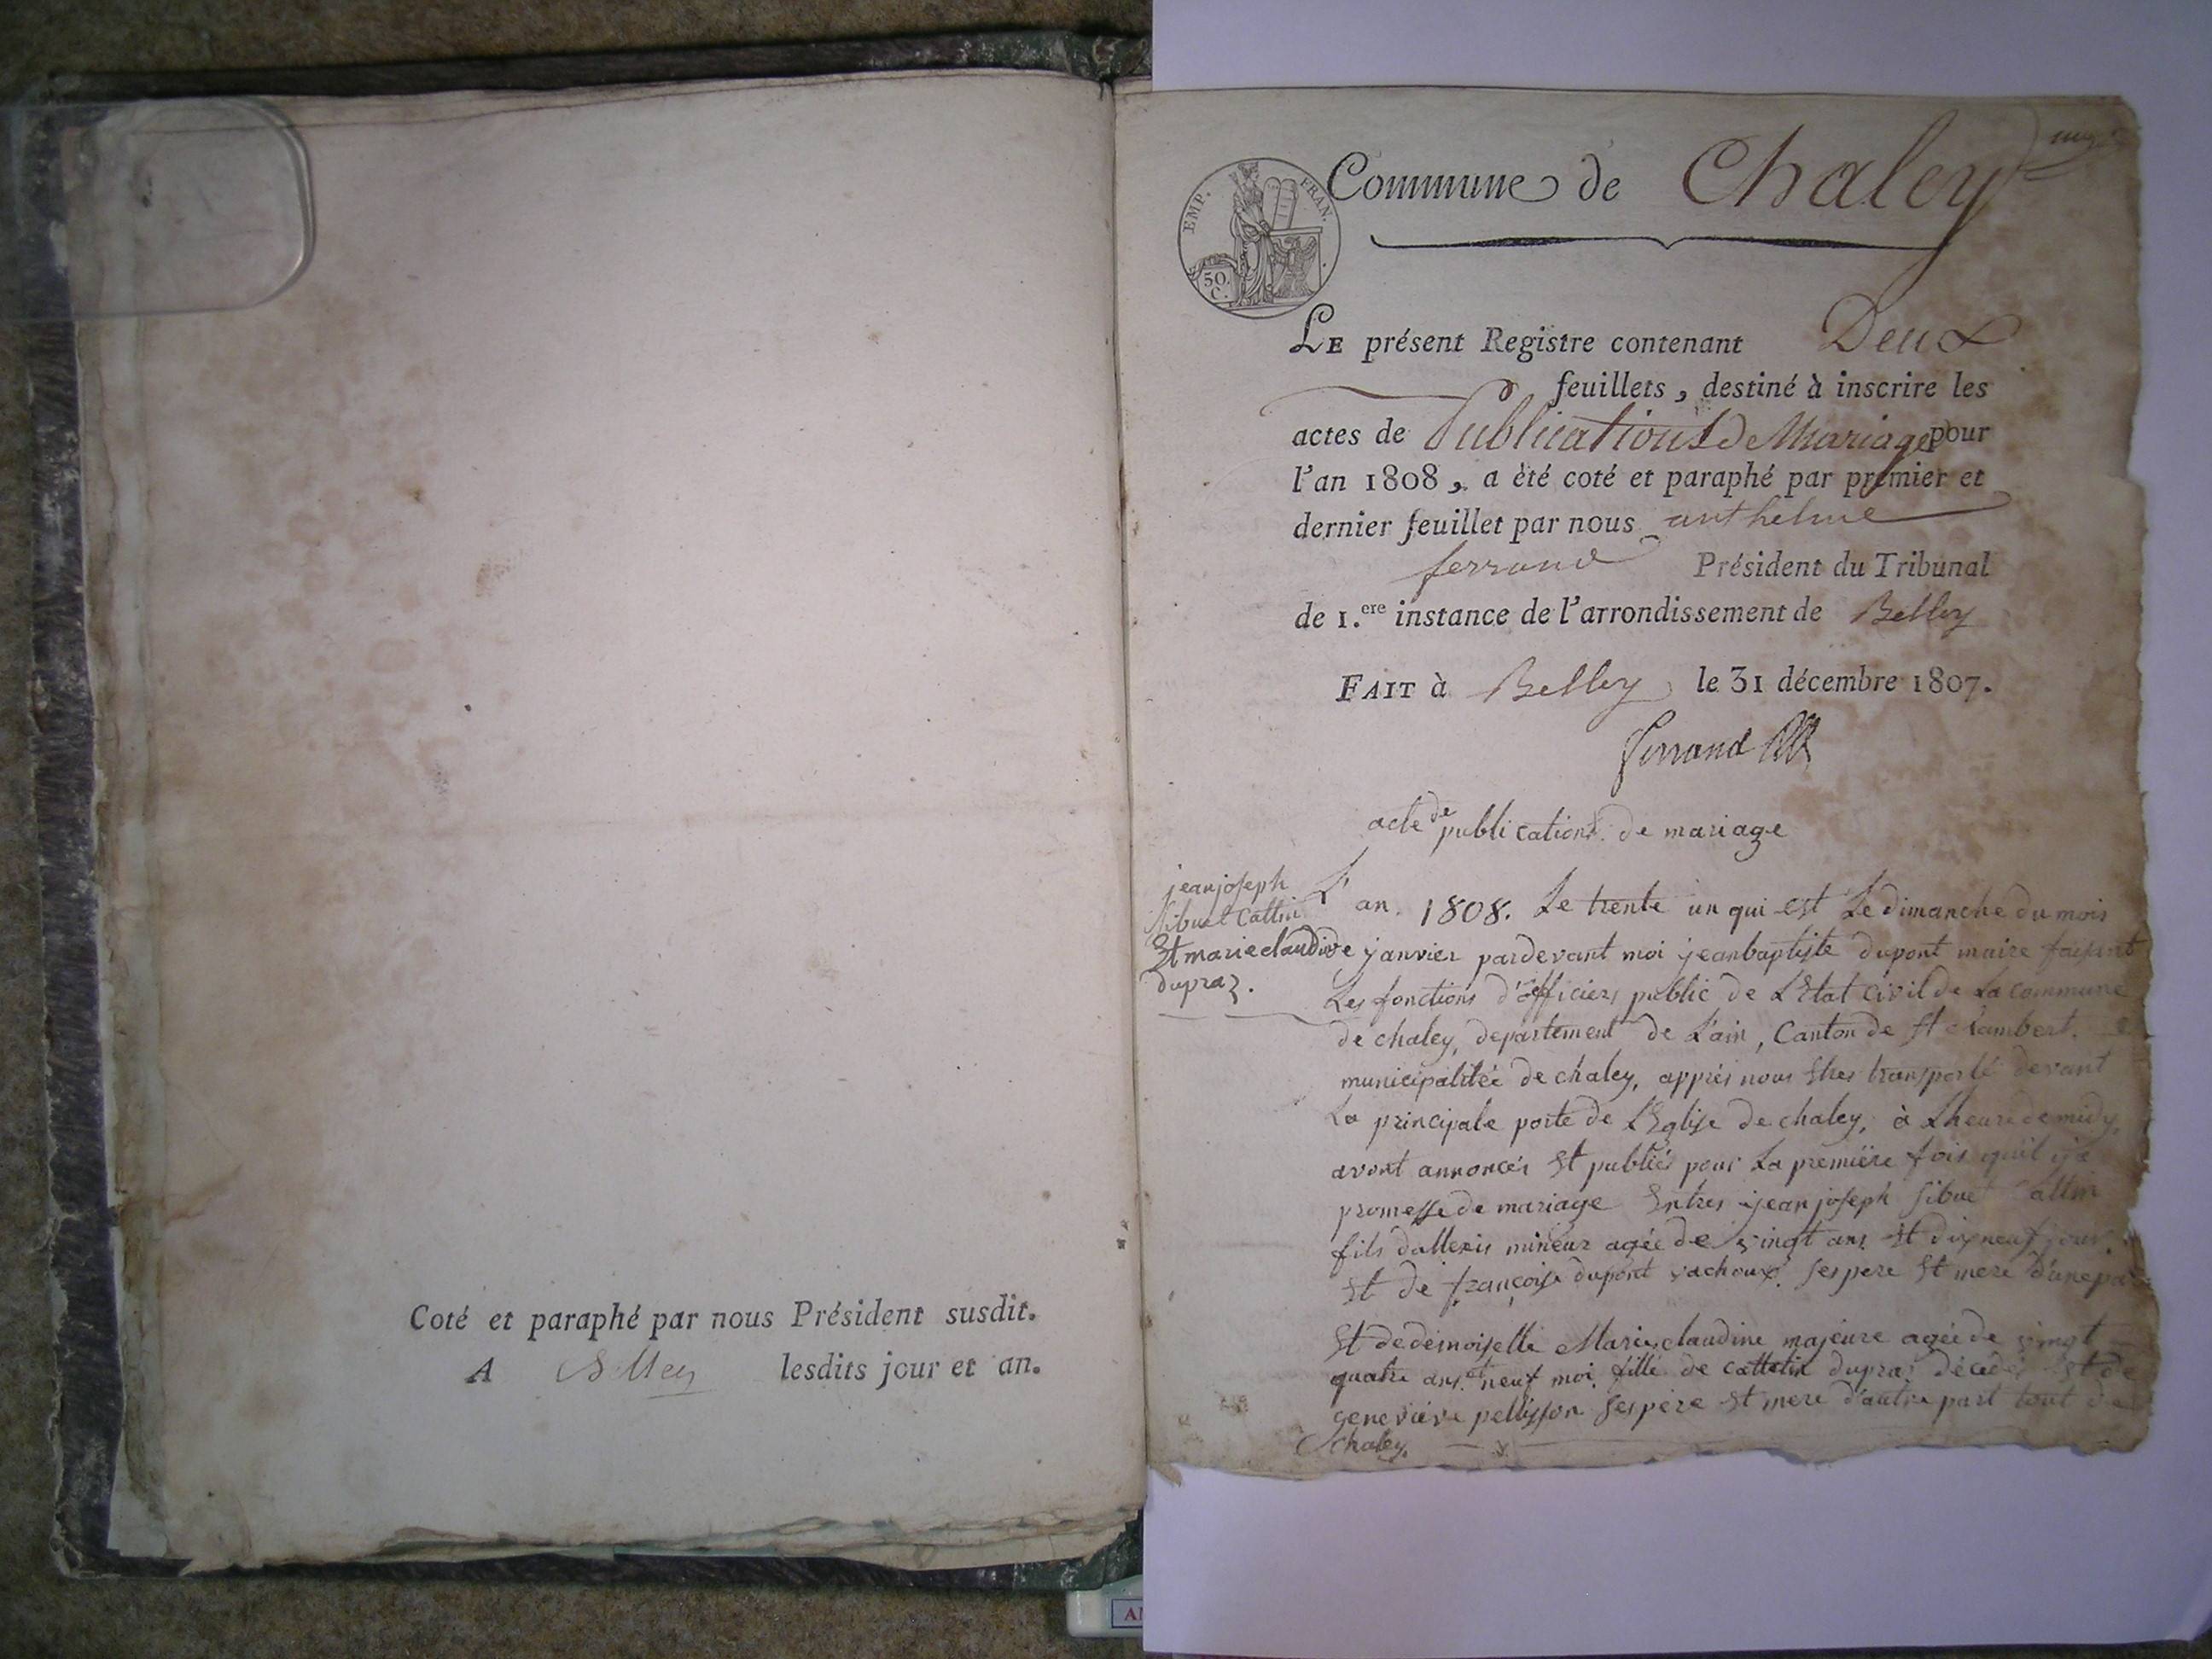 Coté et paraphé par nous Président susdit.
A Belley lesdits jour et an.
EMP. FRAN.
50. C.
Commune de Chaley
LE présent Registre contenant Deux
feuillets, destiné à inscrire les
actes de Publications de Mariage pour
l'an 1808, a été coté et paraphé par premier et
dernier feuillet par nous anthelme
ferrand Président du Tribunal
de 1.ere instance de l'arrondissement de Belley
FAIT à Belley le 31 décembre 1807.
ferrand
acte de publications de mariage
jean joseph
sibuet Cattin
Et marie claudine
dupraz.
L'an 1808. Le trente un qui est Le dimanche du mois
de janvier pardevant moi jean baptiste dupont maire faisant
Les fonctions d'officiers public de L'Etat civil de La commune
de chaley, departement de L'ain, Canton de st rambert.
municipalitée de chaley, apprés nous Etres transporté devant
La principale porte de L'Eglise de chaley, à Lheure de midy,
avont annoncés Et publiés pour La première fois quil y a
promesse de mariage Entres jean joseph sibuet Cattin
fils dallexis mineur agée de vingt ans Et dix neuf jour
Et de françoise dupont vachoux ses pere Et mere d'une par
Et de demoiselle Marie claudine majeure agée de vingt
quatre ans et neuf moi fille de dupraz décédé Et de
geneviève pellisson ses père Et mere d'autre part tout de
chaley.